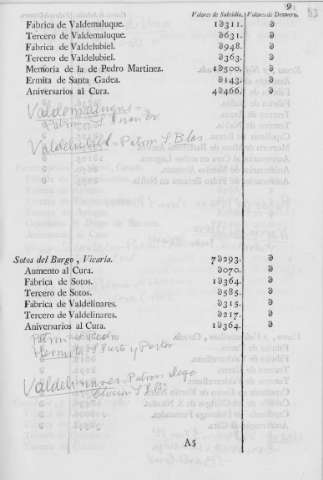 9
Valores de Subsidio. Valores de Dezmero.
Fabrica de Valdemaluque. 1ↄ311. ↄ
Tercero de Valdemaluque. ↄ631. ↄ
Fabrica de Valdelubiel. ↄ948. ↄ
Tercero de Valdelubiel. ↄ363. ↄ
Memoria de la de Pedro Martinez. 1ↄ500. ↄ
Ermita de Santa Gadea. ↄ143. ↄ
Aniversarios al Cura. 4ↄ466. ↄ
Valdemaluque
Valdelubiel - Patron S Blas
Sotos del Burgo, Vicaria. 7ↄ293. ↄ
Aumento al Cura. ↄ070. ↄ
Fabrica de Sotos. 1ↄ364. ↄ
Tercero de Sotos. ↄ585. ↄ
Fabrica de Valdelinares. ↄ315. ↄ
Tercero de Valdelinares. ↄ217. ↄ
Aniversarios al Cura. 1ↄ364. ↄ
Patron
y Pastor
Valdelinares - Patron
A5